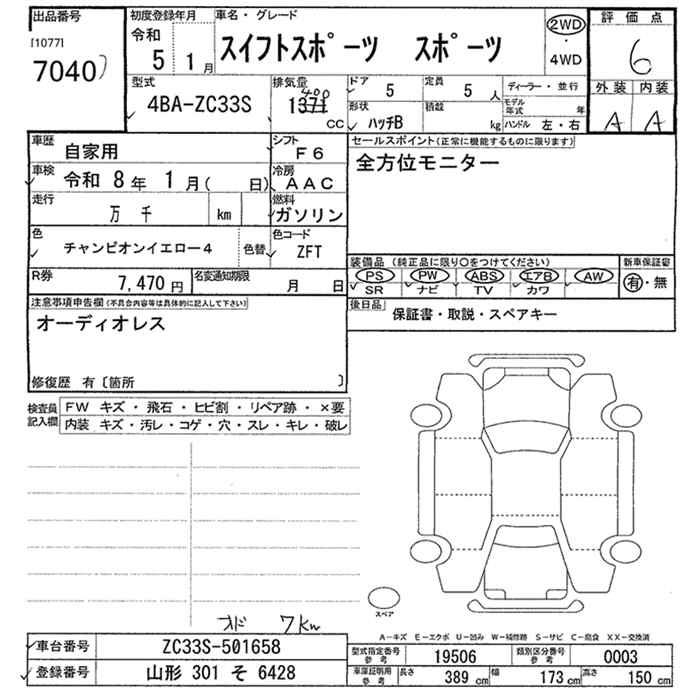 出品番号 初度登録年月 車名・グレード 2WD 評価点
[1077] 令和
7040 5 1月 スイフトスポーツ スポーツ ・ 4WD 6
外装 内装
型式 排気量 ドア 5 定員 5人 ディーラー・並行
4BA-ZC33S 1371 400 cc 形状 ハッチB 積載 kg モデル年式 年 ハンドル 左・右 A A
車歴 自家用 シフト F6 セールスポイント(正常に機能するものに限ります)
車検 令和 8年 1月( 日) 冷房 AAC 全方位モニター
走行 万 千 km 燃料 ガソリン
色 チャンピオンイエロー4 色替 色コード ZFT
装備品 (純正品に限り○をつけてください) 新車保証書
PS PW ABS エアB AW 有・無
SR ナビ TV カワ
R券 7,470円 名変通知期限 月 日
注意事項申告欄(不具合内容等は具体的に記入して下さい) 後日品 保証書・取説・スペアキー
オーディオレス
修復歴 有〔箇所 〕
検査員記入欄 FW キズ・飛石・ヒビ割・リペア跡・×要
内装 キズ・汚レ・コゲ・穴・スレ・キレ・破レ
スペア
オド 7Km
A−キズ E−エクボ U−凹み W−補修跡 S−サビ C−腐食 XX−交換済
車台番号 ZC33S-501658 型式指定番号参考 19506 類別区分番号参考 0003
登録番号 山形 301 そ 6428 車庫証明用参考 長さ 389cm 幅 173cm 高さ 150cm